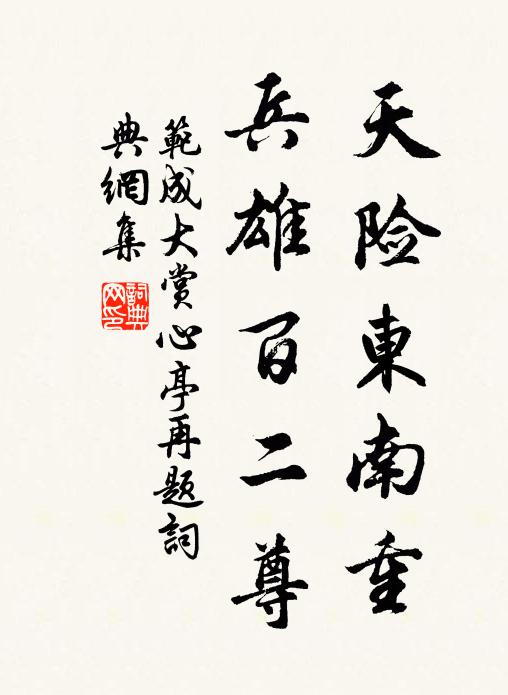 天险東南重
兵雄百二尊
範成大賞心亭再题詞
典網集
詞典
网印